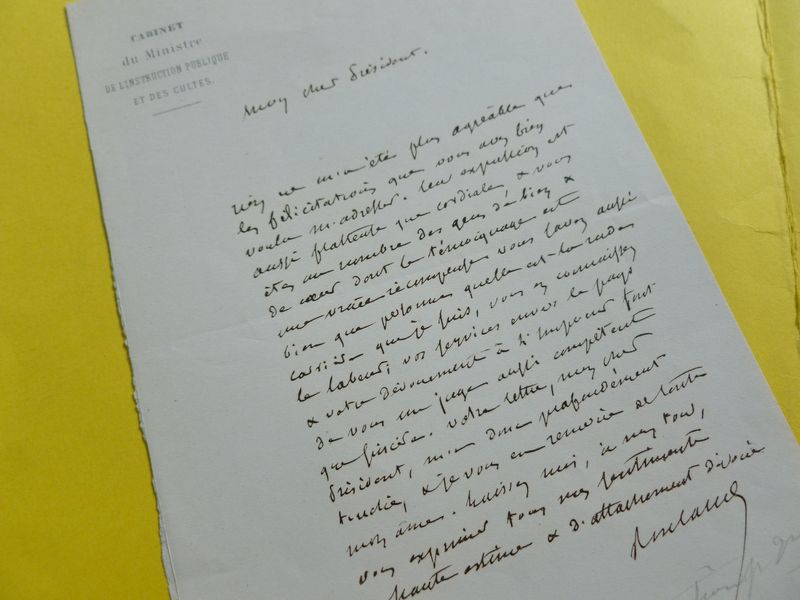 CABINET
du Ministre
DE L'INSTRUCTION PUBLIQUE
ET DES CULTES.
Mon cher Président.
rien ne m'a été plus agréable que
les félicitations que vous avez bien
voulu m'adresser. Leur expression est
aussi flatteuse que cordiale, & vous
êtes au nombre des gens de bien &
de cœur dont le témoignage est
une vraie récompense. vous savez aussi
bien que personne quelle est la rude
carrière que je suis, vous en connaissez
le labeur; vos services envers le pays
& votre dévouement à l'Empereur font
de vous un juge aussi compétent
que sincère. votre lettre, mon cher
Président, m'a donc profondément
touché, & je vous en remercie de toute
mon âme. Laissez moi, à mon tour,
vous exprimer tous mes sentiments
haute estime & d'attachement
Rouland